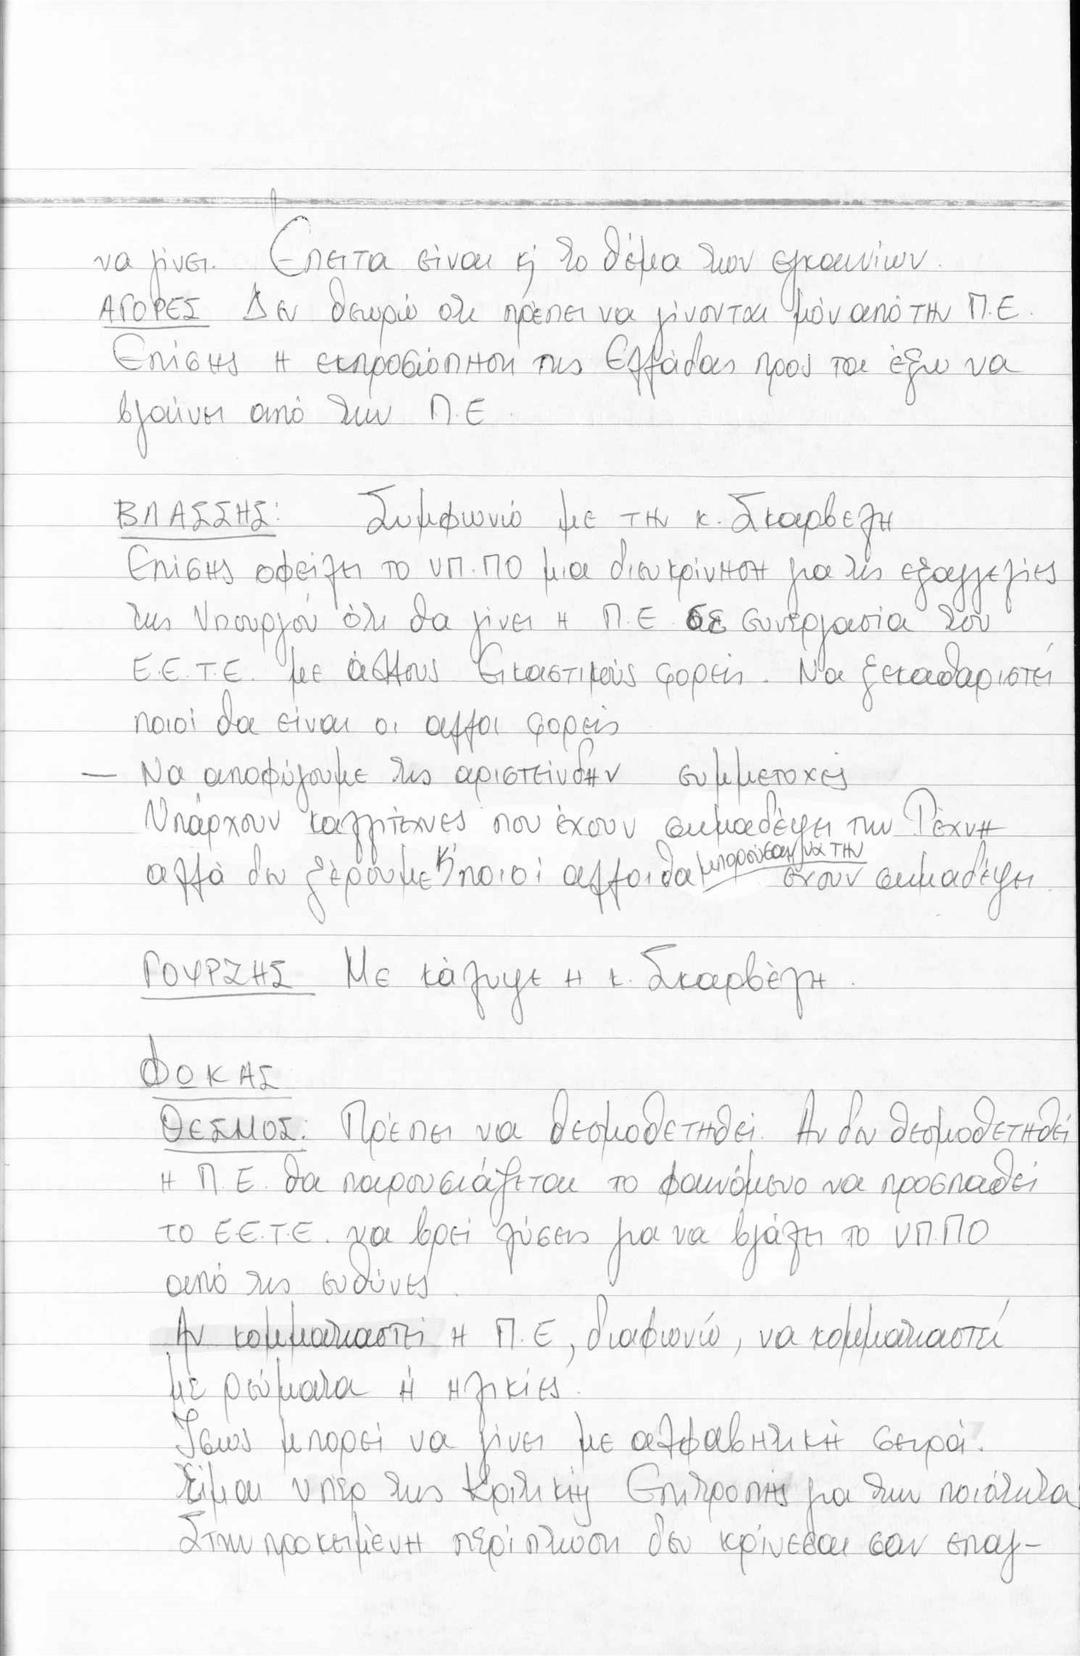 να γίνει. Έπειτα είναι κ' το θέμα των εγκαινίων.
ΑΓΟΡΕΣ Δεν θεωρώ ότι πρέπει να γίνονται μόν από την Π.Ε.
Επίσης η εκπροσώπηση της Ελλάδας προς τα έξω να
βγαίνει από την Π.Ε.
ΒΛΑΣΣΗΣ: Συμφωνώ με την κ. Σκαρβέλη
Επίσης οφείλει το ΥΠ.ΠΟ μια διευκρίνηση για τις εξαγγελίες
της Υπουργού ότι θα γίνει η Π.Ε σε συνεργασία του
Ε.Ε.Τ.Ε. με άλλους Εικαστικούς φορείς. Να ξεκαθαριστεί
ποιοί θα είναι οι αλλοι φορείς
— Να αποφύγουμε τις αριστείνδην συμμετοχές
Υπάρχουν καλλιτέχνες που έχουν σημαδέψει την Τέχνη
αλλά δεν ξέρουμε κ' ποιοί αλλοι θα μπορούσαν να την
έχουν σημαδέψει
ΓΟΥΡΖΗΣ Με κάλυψε η κ. Σκαρβέλη.
ΦΩΚΑΣ
ΘΕΣΜΟΣ: Πρέπει να θεσμοθετηθεί. Αν δεν θεσμοθετηθεί
η Π.Ε. θα παρουσιάζεται το φαινόμενο να προσπαθεί
το Ε.Ε.Τ.Ε. να βρεί λύσεις για να βγάλει το ΥΠ.ΠΟ
από τις ευθύνες.
Αν κομματιαστεί η Π.Ε, διαφωνώ, να κομματιαστεί
με ρεύματα ή ηλικίες.
Ίσως μπορεί να γίνει με αλφαβητική σειρά.
Είμαι υπέρ της Κριτικής Επιτροπής για την ποιότητα
Στην προκειμένη περίπτωση δεν κρίνεσαι σαν επαγ-